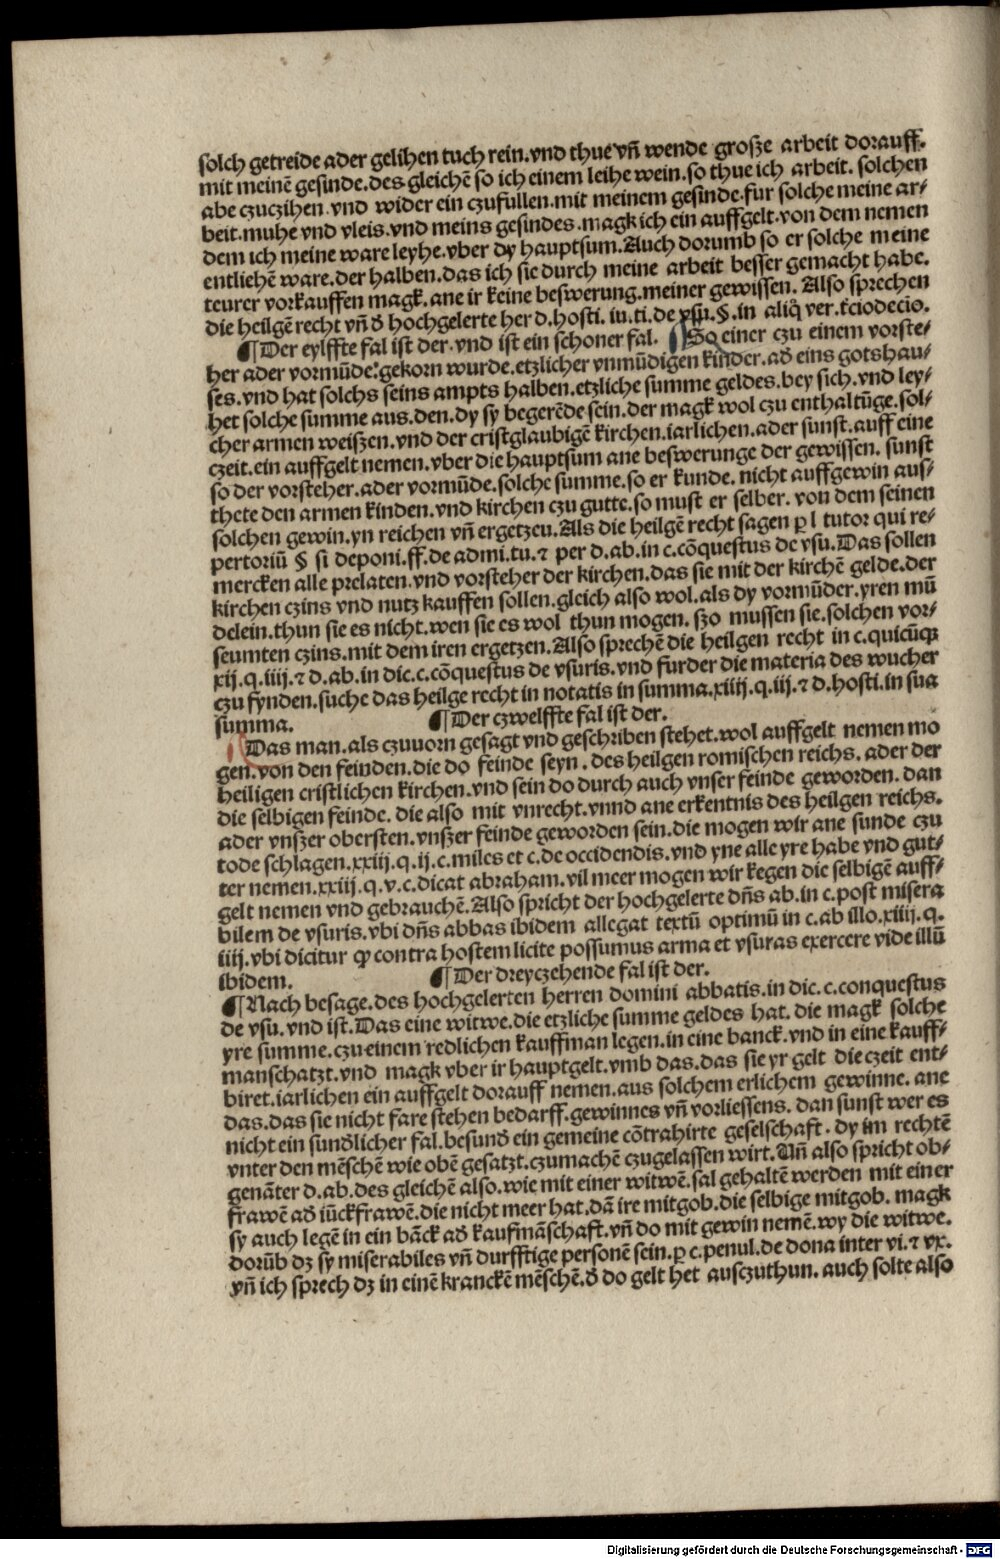 solch getreide ader gelihen tuch rein.vnd thue vn̄ wende große arbeit dorauff.
mit meinē gesinde.des gleichē so ich einem leihe wein.so thue ich arbeit. solchen
abe czuczihen.vnd wider ein czufullen.mit meinem gesinde.fur solche meine ar⸗
beit.muhe vnd vleis.vnd meins gesindes.magk ich ein auffgelt.von dem nemen
dem ich meine ware leyhe.vber dy hauptsum.Auch dorumb so er solche meine
entliehē ware.der halben.das ich sie durch meine arbeit besser gemacht habe.
teurer vorkauffen magk.ane ir keine beswerung.meiner gewissen. Also sprechen
die heilgē recht vn̄ đ hochgelerte her d.hosti. iu.ti.de vsu.§.in aliq̄ ver.tciodecio.
¶Der eylffte fal ist der.vnd ist ein schoner fal. ¶So einer czu einem vorste⸗
her ader vormūde.gekorn wurde.etzlicher vnmūdigen kinder.ađ eins gotshau⸗
ses.vnd hat solchs seins ampts halben.etzliche summe geldes.bey sich.vnd ley⸗
het solche summe aus.den.dy sy begerēde sein.der magk wol czu enthaltūge.sol⸗
cher armen weißen.vnd der cristglaubigē kirchen.iarlichen.ader sunst.auff eine
czeit.ein auffgelt nemen.vber die hauptsum ane beswerunge der gewissen. sunst
so der vorsteher.ader vormūde.solche summe.so er kunde. nicht auffgewin aus⸗
thete den armen kinden.vnd kirchen czu gutte.so must er selber. von dem seinen
solchen gewin.yn reichen vn̄ ergetzeu.Als die heilgē recht sagen ꝑ l tutor qui re⸗
pertoriū § si deponi.ff.de admi.tu.⁊ per d.ab.in c.cōquestus de vsu.Das sollen
mercken alle prelaten.vnd vorsteher der kirchen.das sie mit der kirchē gelde.der
kirchen czins vnd nutz kauffen sollen.gleich also wol.als dy vormūder.yren mū
delein.thun sie es nicht.wen sie es wol thun mogen. szo mussen sie.solchen vor⸗
seumten czins.mit dem iren ergetzen.Also sprechē die heilgen recht in c.quicūqꝫ
xij.q.iiij.⁊ d.ab.in dic.c.cōquestus de vsuris.vnd furder die materia des wucher
czu fynden.suche das heilge recht in notatis in summa.xiiij.q.iij.⁊ d.hosti.in sua
summa. ¶Der czwelffte fal ist der.
Das man.als czuuorn gesagt vnd geschriben stehet.wol auffgelt nemen mo
gen.von den feinden.die do feinde seyn . des heilgen romischen reichs. ader der
heiligen cristlichen kirchen.vnd sein do durch auch vnser feinde geworden. dan
die selbigen feinde. die also mit vnrecht.vnnd ane erkentnis des heilgen reichs.
ader vnszer obersten.vnszer feinde geworden sein.die mogen wir ane sunde czu
tode schlagen.xxiij.q.ij.c.miles et c.de occidendis.vnd yne alle yre habe vnd gut⸗
ter nemen.xxiij.q.v.c.dicat abraham.vil meer mogen wir kegen die selbigē auff⸗
gelt nemen vnd gebrauchē.Also spricht der hochgelerte dn̄s ab.in c.post misera
bilem de vsuris.vbi dn̄s abbas ibidem allegat textū optimū in c.ab illo.xiiij.q.
iiij.vbi dicitur ꝙ contra hostem licite possumus arma et vsuras exercere vide illū
ibidem. ¶Der dreyczehende fal ist der.
¶Nach besage.des hochgelerten herren domini abbatis.in dic.c.conquestus
de vsu.vnd ist.Das eine witwe.die etzliche summe geldes hat. die magk solche
yre summe.czu einem redlichen kauffman legen.in eine banck.vnd in eine kauff⸗
manschatzt.vnd magk vber ir hauptgelt.vmb das.das sie yr gelt die czeit ent⸗
biret.iarlichen ein auffgelt dorauff nemen.aus solchem erlichem gewinne. ane
das.das sie nicht fare stehen bedarff.gewinnes vn̄ vorliessens. dan sunst wer es
nicht ein sunđlicher fal.besunđ ein gemeine cōtrahirte geselschaft. dy im rechtē
vnter den mēschē wie obē gesatzt.czumachē czugelassen wirt.Vn̄ also spricht ob⸗
genāter d.ab.des gleichē also.wie mit einer witwē.sal gehaltē werden mit einer
frawē ađ iūckfrawē.die nicht meer hat.dā ire mitgob.die selbige mitgob. magk
sy auch legē in ein bāck ađ kaufmāschaft.vn̄ do mit gewin nemē.wy die witwe.
dorūb dz sy miserabiles vn̄ durfftige personē sein.ꝑ c.penul.de dona inter vi.⁊ vx.
vn̄ ich sprech dz in einē kranckē mēschē.đ do gelt het ausczuthun. auch solte also
Digitalisierung gefördert durch die Deutsche Forschungsgemeinschaft - DFG